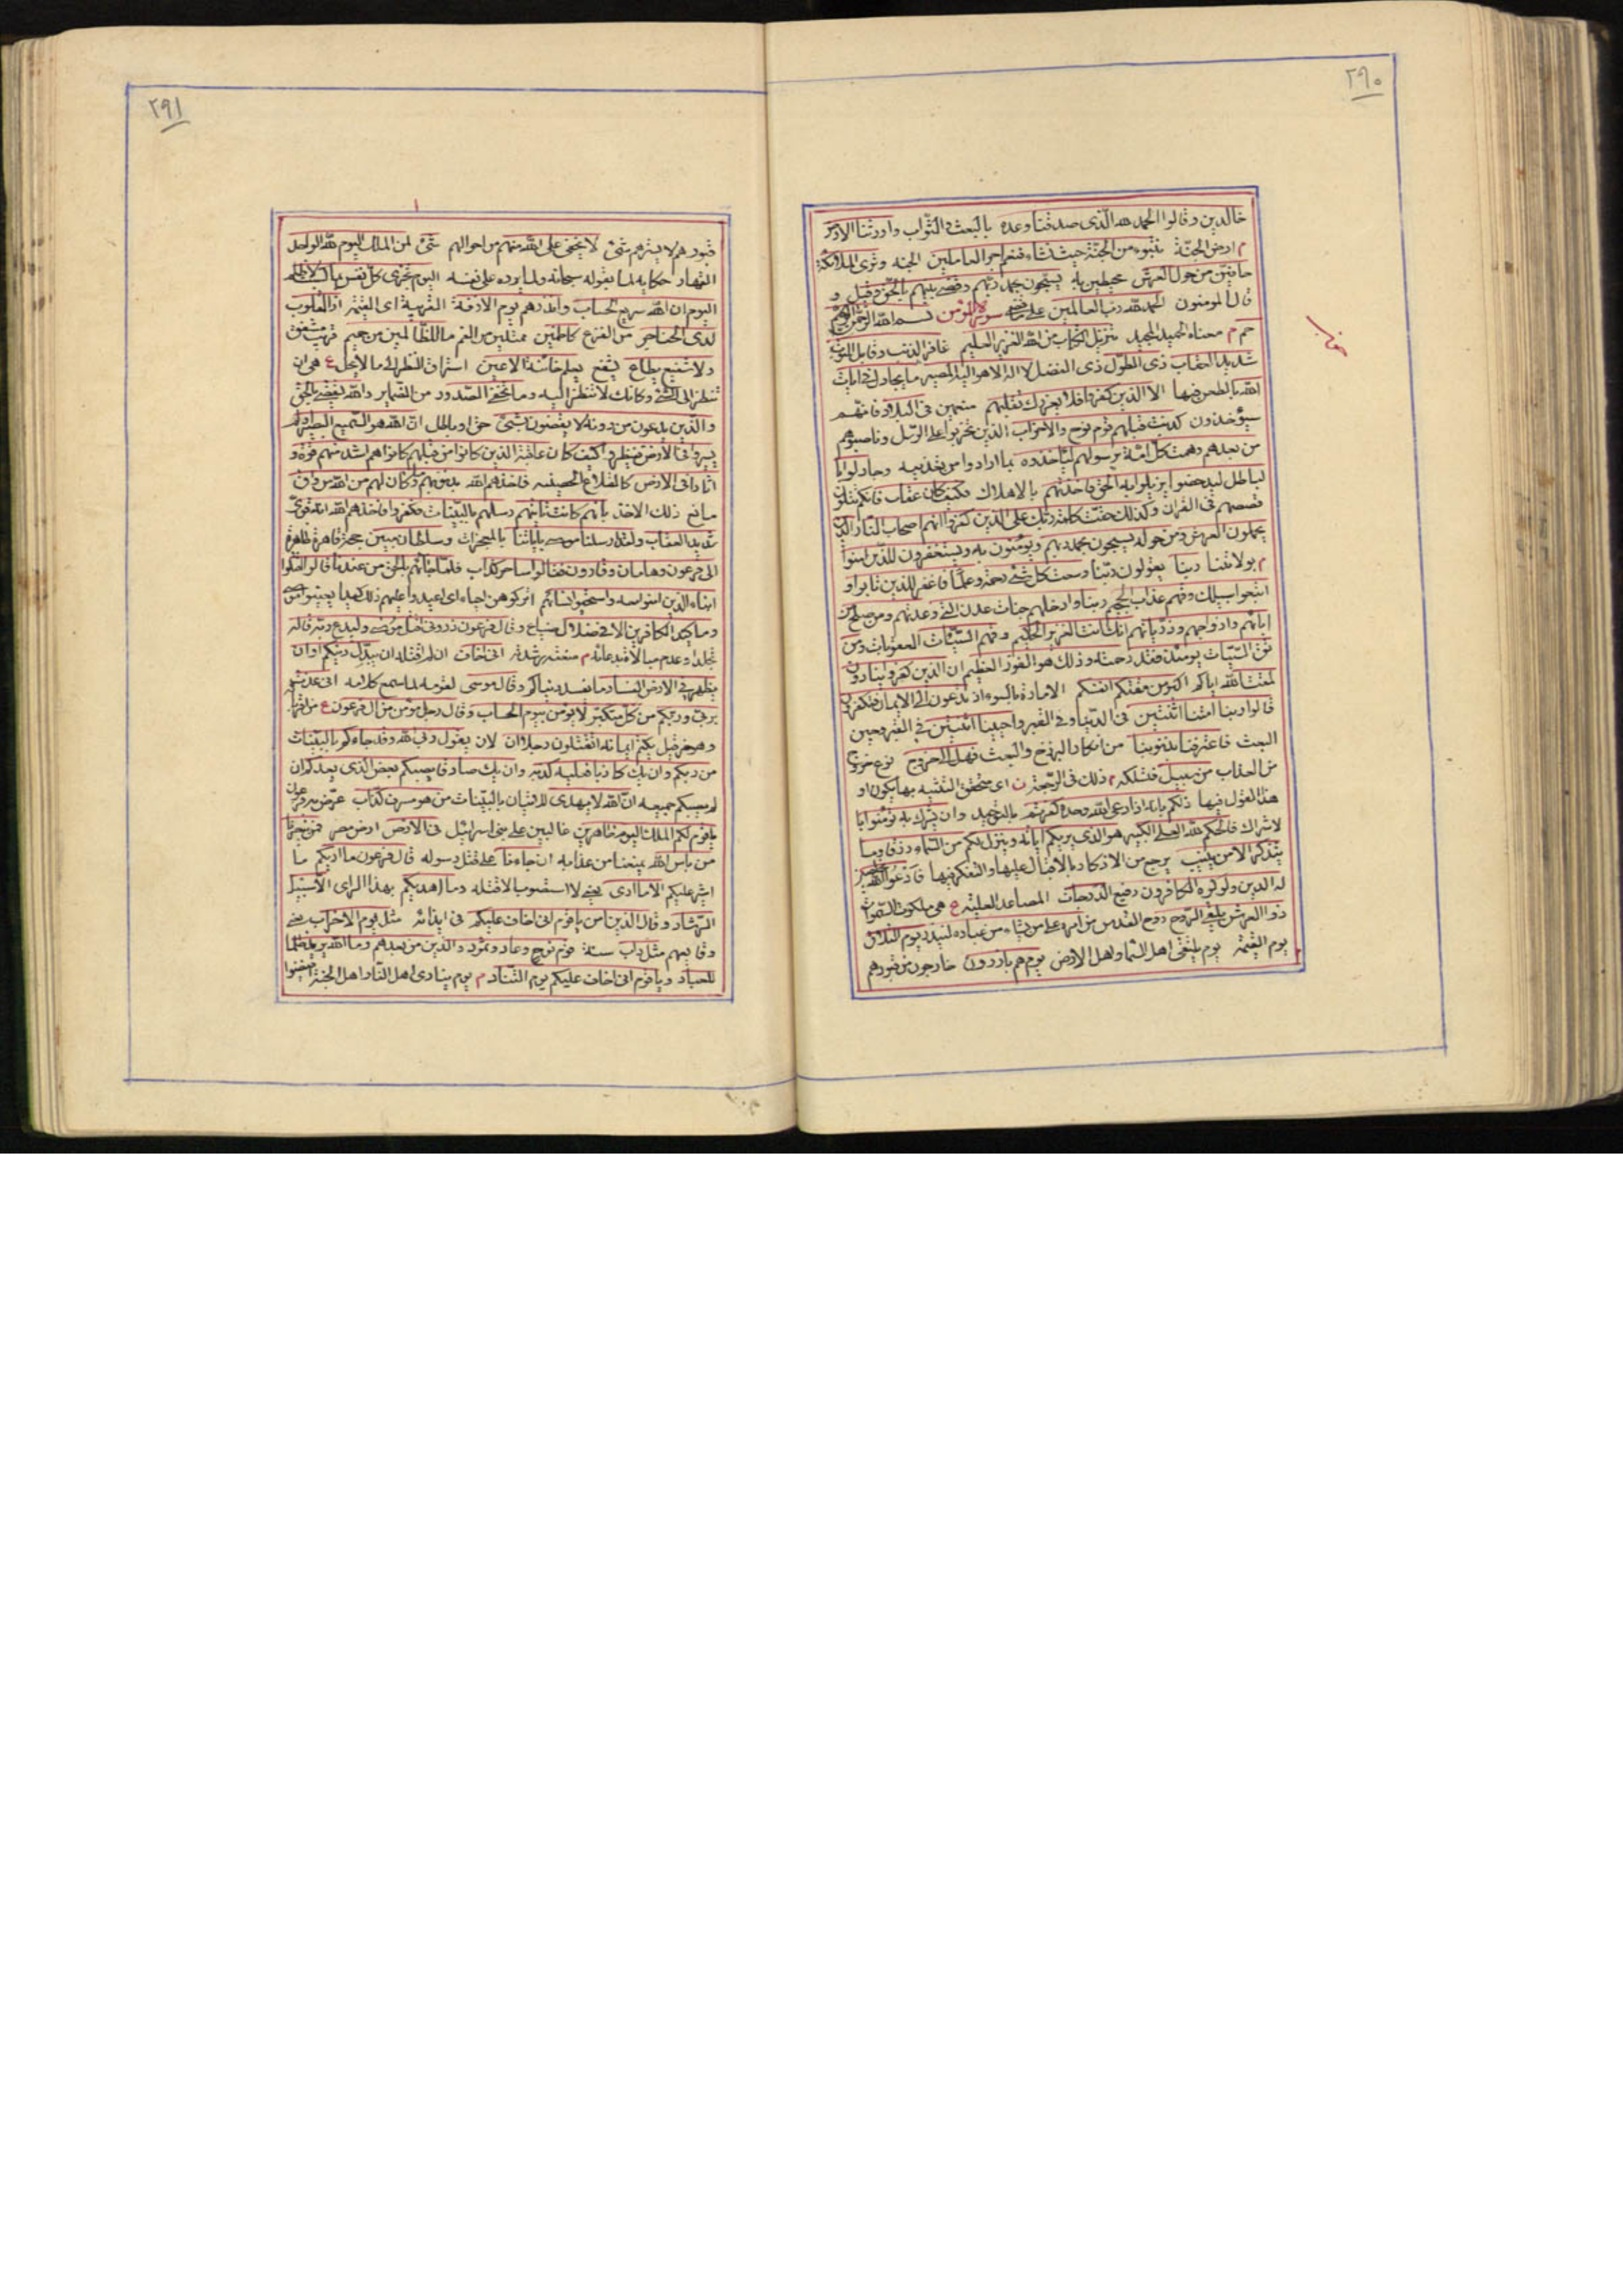 ٢٩٠
خالدين وقالوا الحمد لله الذى صدقنا وعده بالبعث والثواب واورثنا الارض
م ارض الجنة نتبوء من الجنة حيث نشاء فنعم اجر العاملين الجنة وترى الملائكة
حافين من حول العرش محيطين به يسبحون بحمد ربهم وقضى بينهم بالحق وقيل و
قال المومنون الحمد لله رب العالمين على سورة المؤمن بسم الله الرحمن الرحيم
حم م معناه الحميد المجيد تنزيل الكتاب من الله العزيز العليم غافر الذنب وقابل التوب
شديد العقاب ذى الطول ذى الفضل لا اله الا هو اليه المصير ما يجادل فى ايات
الله بالطعن فيها الا الذين كفروا فلا يغررك تقلبهم متنعمين فى البلاد فانهم
سيؤخذون كذبت قبلهم قوم نوح والاحزاب الذين تحزبوا على الرسل وناصبوهم
من بعدهم وهمت كل امة برسولهم لياخذوه بما ارادوا من تعذيبه وجادلوا با
لباطل ليدحضوا يزيلوا به الحق فاخذتهم بالاهلاك فكيف كان عقاب فانكم
قصصهم فى القران وكذلك حقت كلمة ربك على الذين كفروا انهم اصحاب النار الذين
يحملون العرش ومن حوله يسبحون بحمد ربهم ويؤمنون به ويستغفرون للذين امنوا
م بولايتنا ربنا يقولون ربنا وسعت كل شئ رحمة وعلما فاغفر للذين تابوا و
اتبعوا سبيلك وقهم عذاب الجحيم ربنا وادخلهم جنات عدن التى وعدتهم ومن صلح من
ابائهم وازواجهم وذرياتهم انك انت العزيز الحكيم وقهم السيئات العقوبات ومن
تق السيئات يومئذ فقد رحمته وذلك هو الفوز العظيم ان الذين كفروا ينادون
لمقت الله اياكم اكبر من مقتكم انفسكم الامارة بالسوء اذ تدعون الى الايمان فتكفرون
قالوا ربنا امتنا اثنتين فى الدنيا وفى القبر واحييتنا اثنتين فى القبر وحين
البعث فاعترفنا بذنوبنا من انكار البرزخ والبعث فهل الى خروج نوع خروج
من العذاب من سبيل فنسلكه م ذلك فى الرجعة ن اى متحقق التثنية بها يكون او
هذا القول فيها ذلكم بانه اذا دعى الله وحده كفرتم بالتوحيد وان يشرك به تؤمنوا با
لاشراك فالحكم لله العلى الكبير هو الذى يريكم اياته وينزل لكم من السماء رزقا وما
يتذكر الا من ينيب يرجع من الانكار بالاقبال عليها والتفكر فيها فادعوا الله
له الدين ولو كره الكافرون رفيع الدرجات المصاعد العلية ع هى ملكوت السموات
ذو العرش يلقى الروح روح القدس من امره على من يشاء من عباده لينذر يوم التلاق
يوم القيمة يوم يلتقى اهل السماء واهل الارض يوم هم بارزون خارجون من قبورهم
٢٩١
قبورهم لا يسترهم شئ لا يخفى على الله منهم من احوالهم شئ لمن الملك اليوم لله الواحد
القهار حكاية لما يقوله سبحانه ولما يرده على نفسه اليوم تجزى كل نفس بما كسبت لا ظلم
اليوم ان الله سريع الحساب وانذرهم يوم الازفة القريبة اى القيمة اذ القلوب
لدى الحناجر من الفزع كاظمين ممتلئين من الغم ما للظالمين من حميم قريب مشفق
ولا شفيع يطاع يشفع يعلم خائنة الاعين استراق النظر الى ما لا يحل ع هى ان
تنظر الى الشئ وكانك لا تنظر اليه وما تخفى الصدور من الضماير والله يقضى بالحق
والذين يدعون من دونه لا يقضون بشئ حق او باطل ان الله هو السميع البصير اولم
يسيروا فى الارض فينظروا كيف كان عاقبة الذين كانوا من قبلهم كانوا هم اشد منهم قوة و
اثارا فى الارض كالقلاع الحصينه فاخذهم الله بذنوبهم وما كان لهم من الله من واق
مانع ذلك الاخذ بانهم كانت تاتيهم رسلهم بالبينات فكفروا فاخذهم الله انه قوى
شديد العقاب ولقد ارسلنا موسى باياتنا بالمعجزات وسلطان مبين حجة قاهرة ظاهرة
الى فرعون وهامان وقارون فقالوا ساحر كذاب فلما جائهم بالحق من عندنا قالوا اقتلوا
ابناء الذين امنوا معه واستحيوا نسائهم اتركوهن احياء اى اعيدوا عليهم ذلك
وما كيد الكافرين الا فى ضلال ضياع وقال فرعون ذرونى اقتل موسى وليدع ربه قاله
تجلدا وعدم مبالاة بدعائه م منعته رشدته انى اخاف ان لم اقتله ان يبدل دينكم او ان
يظهر فى الارض الفساد ما يفسد دنياكم وقال موسى لقومه لما سمع كلامه انى عذت
بربى وربكم من كل متكبر لا يؤمن بيوم الحساب وقال رجل مؤمن من ال فرعون ع من
وهو خربيل يكتم ايمانه اتقتلون رجلا ان لان يقول ربى الله وقد جاءكم بالبينات
من ربكم وان يك كاذبا فعليه كذبه وان يك صادقا يصبكم بعض الذى يعدكم ان
لم يصبكم جميعه ان الله لا يهدى للاتيان بالبينات من هو مسرف كذاب عرض به فرعون
يا قوم لكم الملك اليوم ظاهرين غالبين على بنى اسرائيل فى الارض ارض مصر فمن ينصرنا
من باس الله يمنعنا من عذابه ان جاءنا على قتل رسوله قال فرعون ما اريكم ما
اشير عليكم الا ما ارى يعنى لا استصوب الا قتله وما اهديكم بهذا الراى الا سبيل
الرشاد وقال الذى امن يا قوم انى اخاف عليكم فى ايذائه مثل يوم الاحزاب يعنى
وقايعهم مثل داب سنة قوم نوح وعاد وثمود والذين من بعدهم وما الله يريد ظلما
للعباد ويا قوم انى اخاف عليكم يوم التناد م يوم ينادى اهل النار اهل الجنة افيضوا